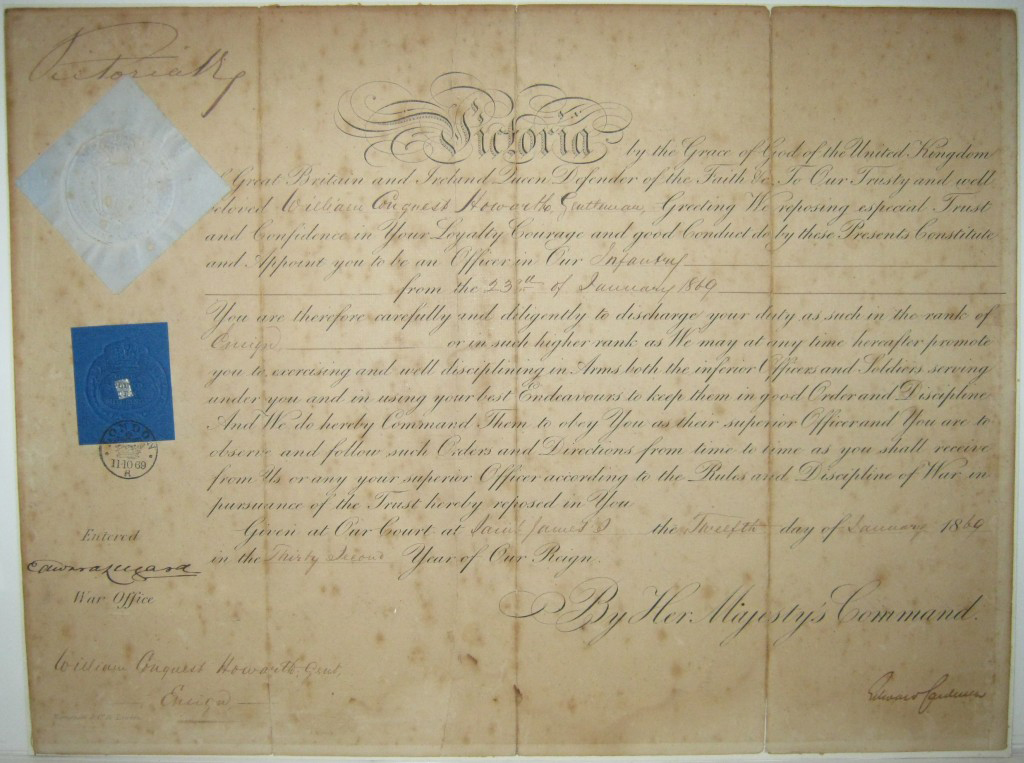 Victoria R
Victoria by the Grace of God of the United Kingdom
of Great Britain and Ireland Queen Defender of the Faith &c. To Our Trusty and well
beloved William Conquest Howorth, Gentleman, Greeting We reposing especial Trust
and Confidence in Your Loyalty Courage and good Conduct do by these Presents Constitute
and Appoint you to be an Officer in Our Infantry
from the 23rd of January 1869
You are therefore carefully and diligently to discharge your duty as such in the rank of
Ensign or in such higher rank as We may at any time hereafter promote
you to, exercising and well disciplining in Arms both the inferior Officers and Soldiers serving
under you and in using your best Endeavours to keep them in good Order and Discipline
And We do hereby Command Them to obey You as their superior Officer and You are to
observe and follow such Orders and Directions from time to time as you shall receive
from Us or any your superior Officer according to the Rules and Discipline of War in
pursuance of the Trust hereby reposed in You
Given at Our Court at Saint James's the Twelfth day of January 1869
in the Thirty Second Year of Our Reign.
By Her Majesty's Command.
LONDON
11·10 69
Entered
Edward Lugard
War Office
William Conquest Howorth, Gent
Ensign
Edward Cardwell